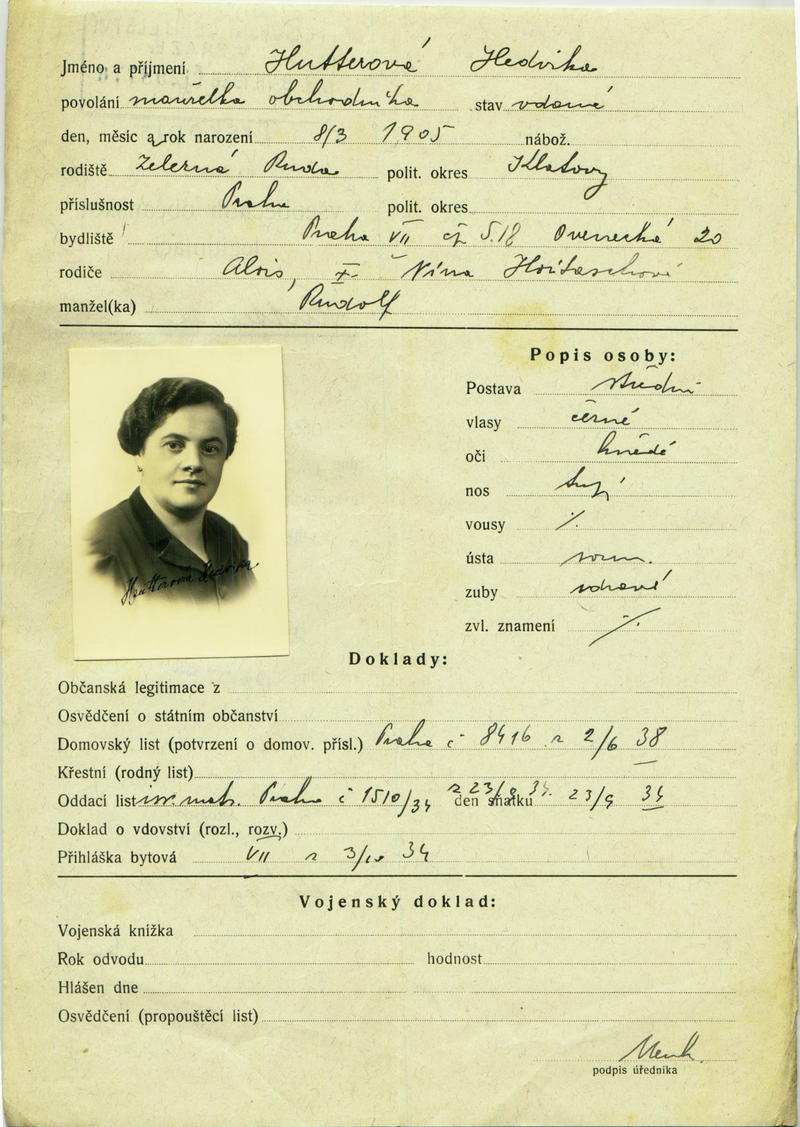 Jméno a příjmení Hutterová Hedvika
povolání manželka obchodníka stav vdaná
den, měsíc a rok narození 8/3 1905 nábož.
rodiště Železná Ruda polit. okres Klatovy
příslušnost Praha polit. okres
bydliště Praha VII čp 518 Ovenecká 20
rodiče Alois, Nina
manžel(ka) Rudolf
Popis osoby:
Postava střední
vlasy černé
oči hnědé
nos
vousy ⁒
ústa
zuby zdravé
zvl. znamení ⁒
Hutterová Hedvika
Doklady:
Občanská legitimace z
Osvědčení o státním občanství
Domovský list (potvrzení o domov. přísl.) Praha č 8416 z 2/6 38
Křestní (rodný list)
Oddací list Praha č 1510/34 z 23/9 34. den sňatku 23/9 34
Doklad o vdovství (rozl., rozv.)
Přihláška bytová VII z 34
Vojenský doklad:
Vojenská knížka
Rok odvodu hodnost
Hlášen dne
Osvědčení (propouštěcí list)
podpis úředníka